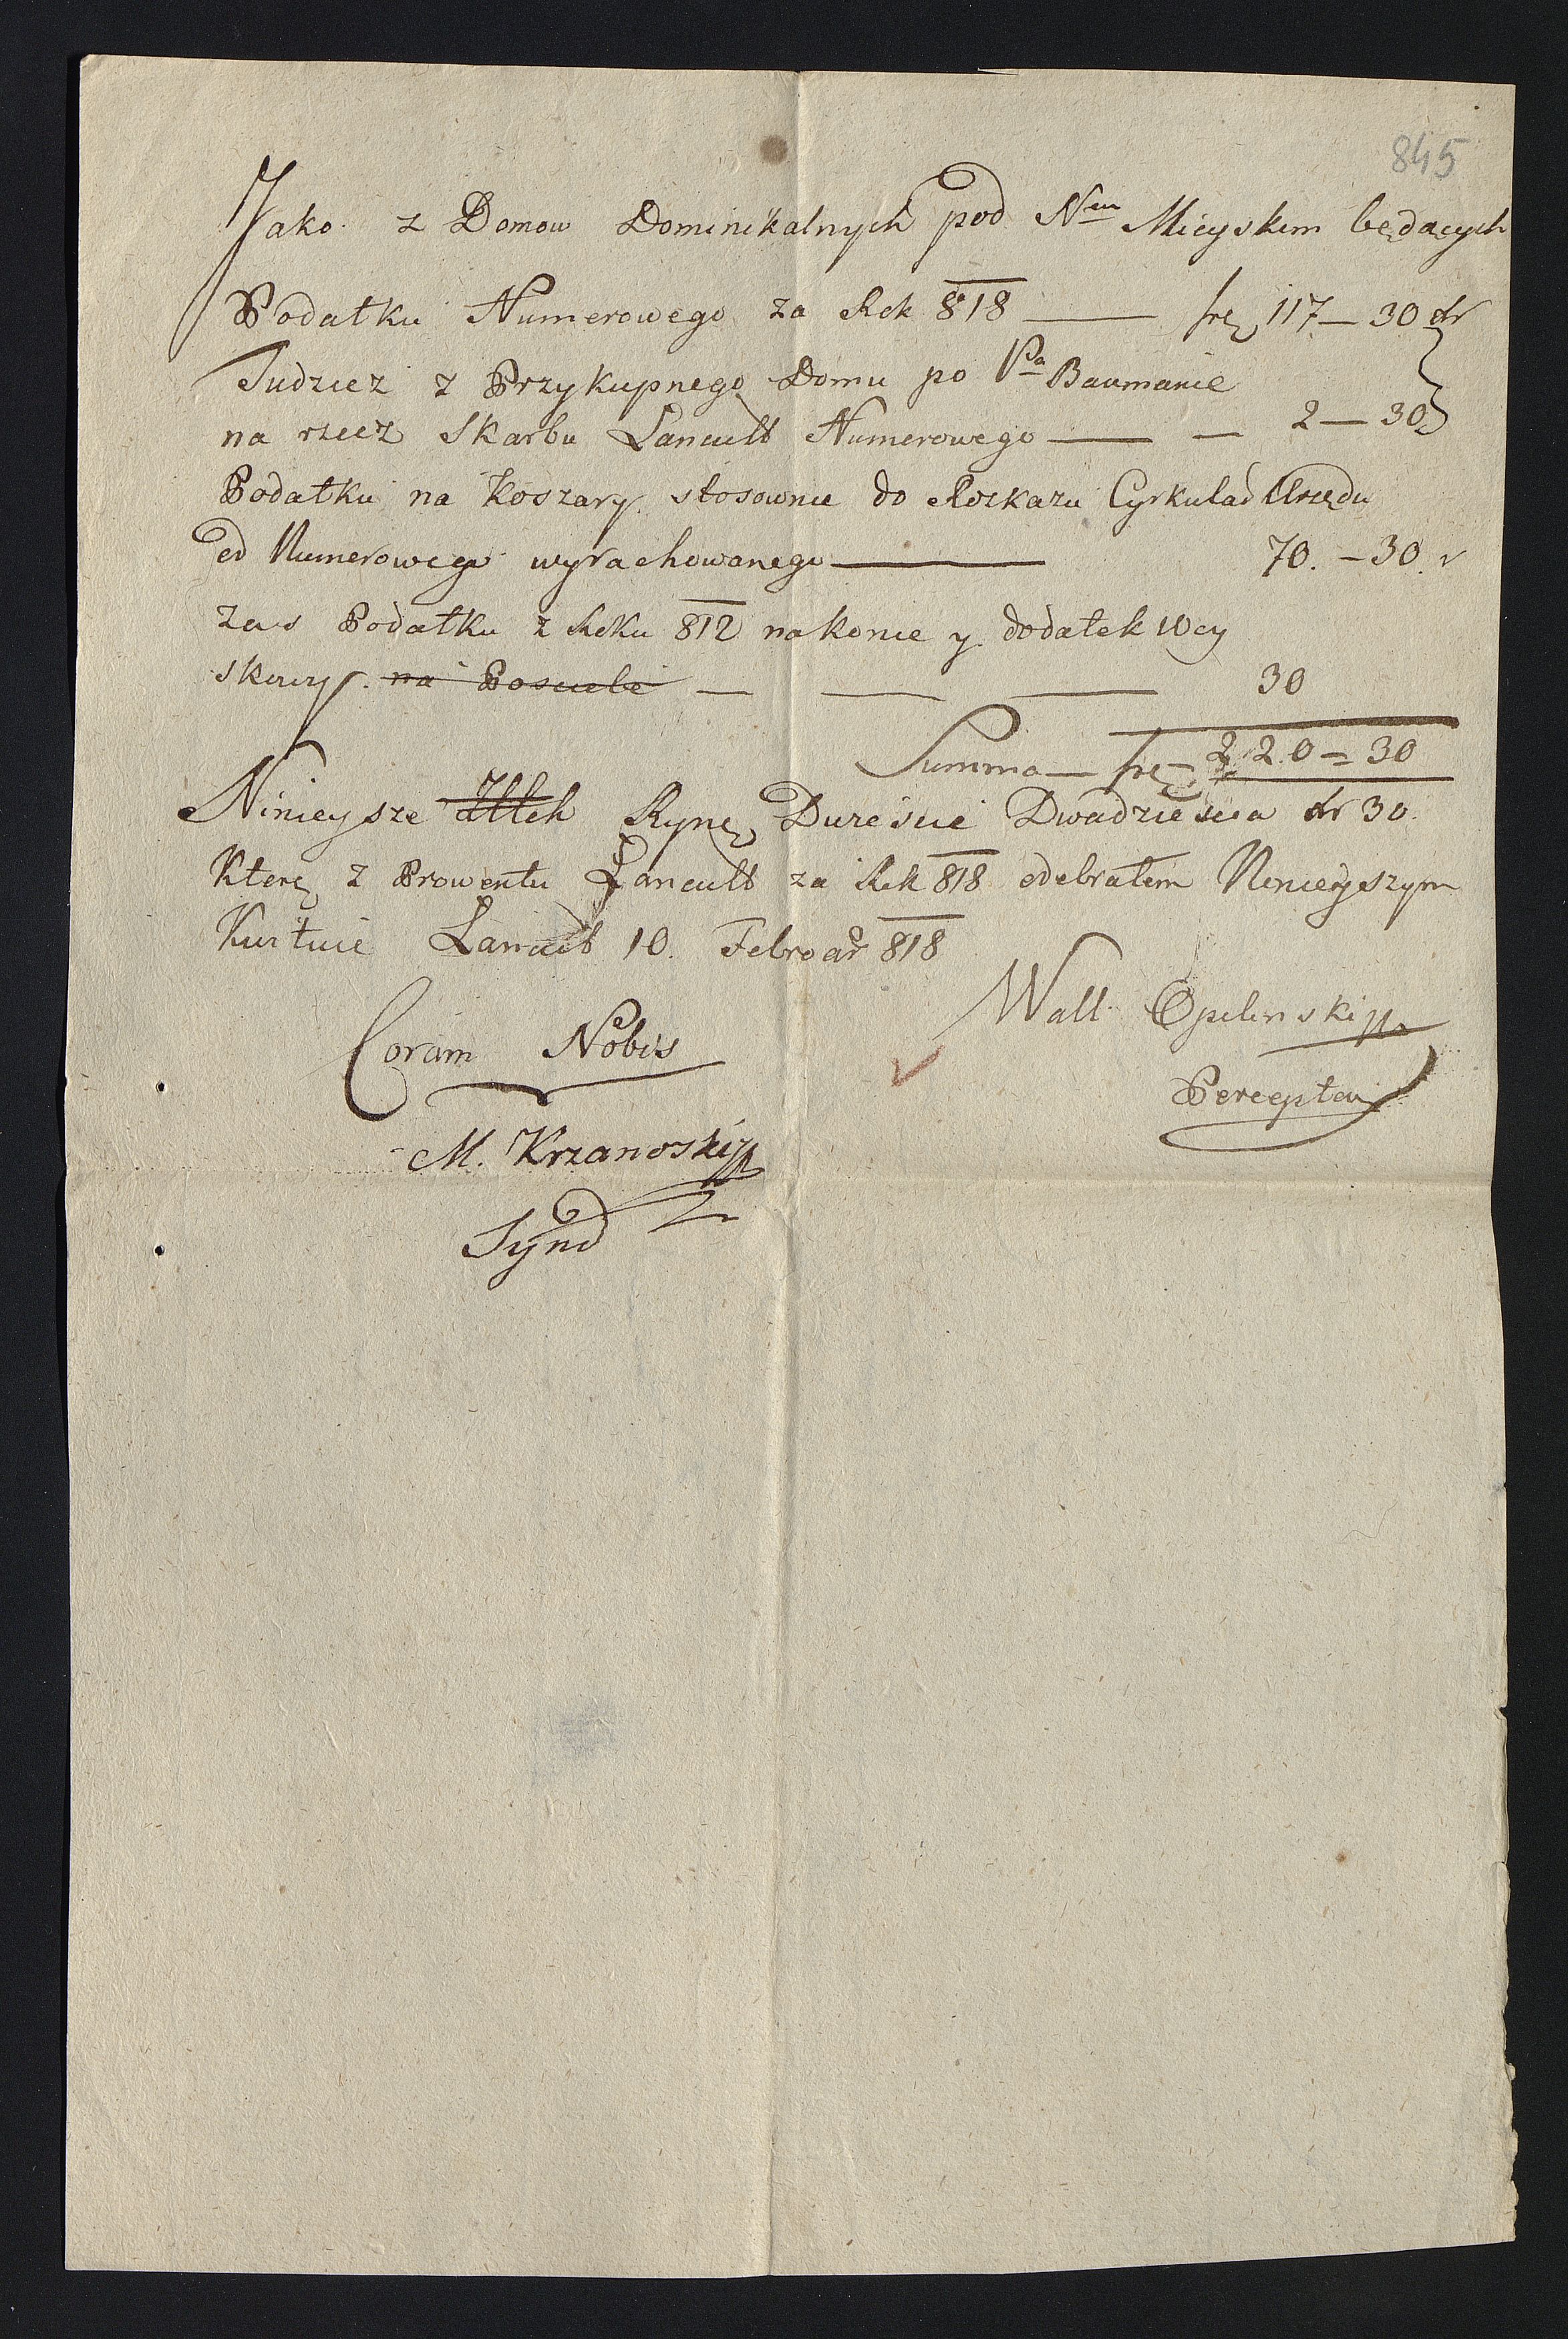 845
Jako z Domow Dominikalnych pod Nem Mieyskim będących
Podatku Numerowego za Rok 818 — fre 117 — 30 xr
Tudziez z Przykupnego Domu po Pa Baumanie
na rzecz Skarbu Lancutt Numerowego — — 2 — 30
Podatku na Koszary stosownie do Rozkazu Cyrkular Urzędu
od Numerowego wyrachowanego — 70. — 30.
Zas Podatku z Roku 812 na konie y dodatek
skowy na Posciele — — — 30
Summa — fre 220 = 30
Ninieysze Złtch Rynę Dwieście Dwadzieścia xr 30.
Którę z Prowentu Lancutt za Rok 818 odebrałem Ninieyszym
Kwituie Lancut 10. Februar 818
Wall. Opilinski
Coram Nobis
Perceptor
M. Krzanoski
Synd